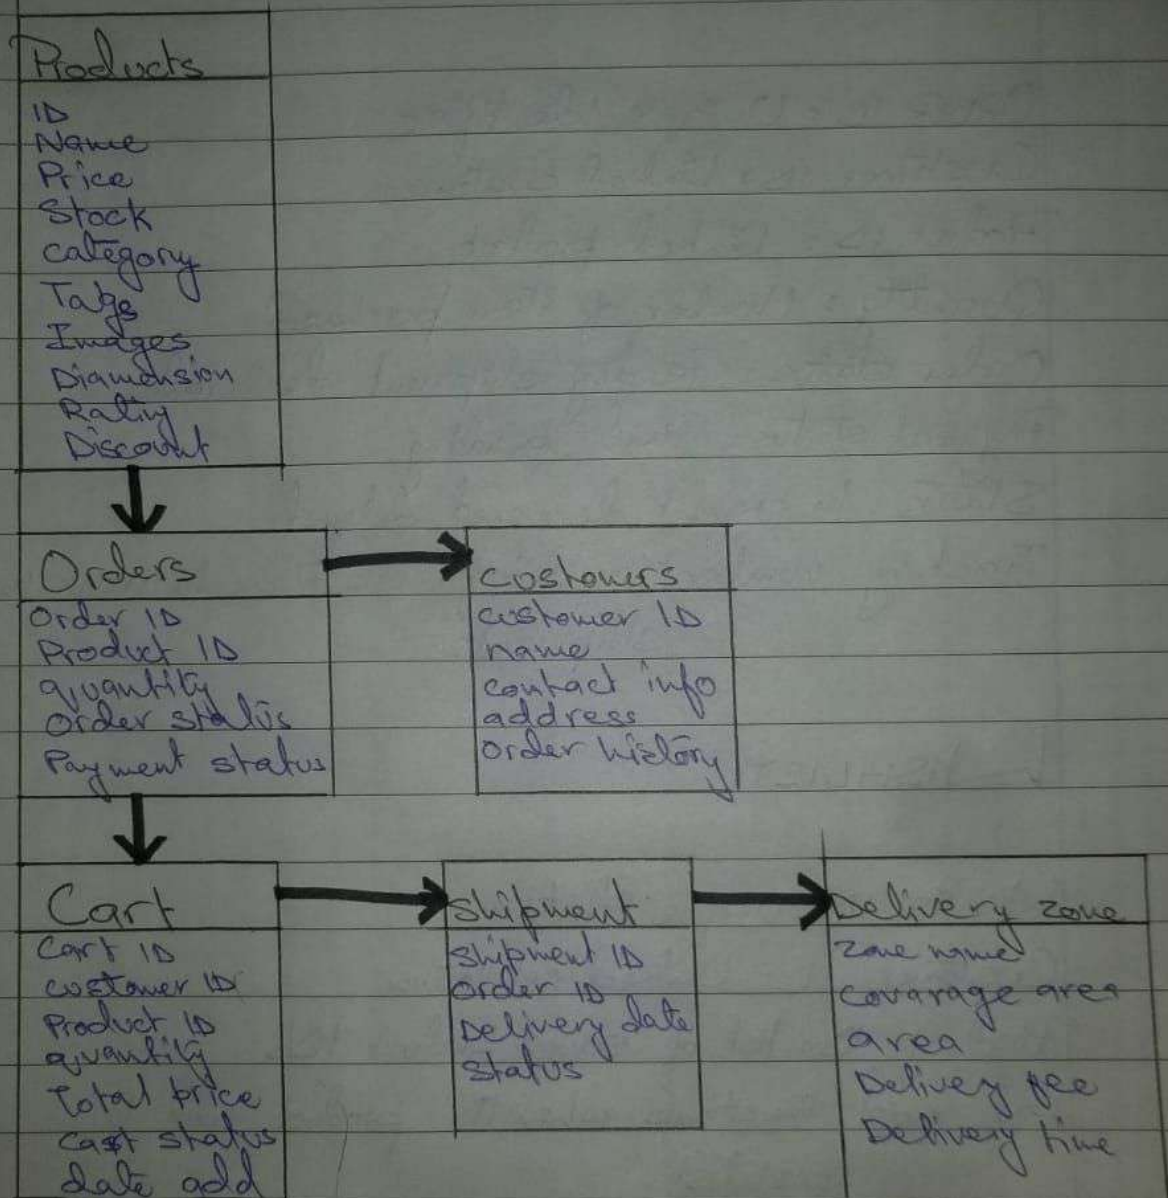 Products
ID
Name
Price
Stock
category
Tags
Images
Diamension
Rating
Discount
Orders
Order ID
Product ID
quantity
Order status
Payment status
Costomers
customer ID
name
contact info
address
Order history
Cart
Cart ID
customer ID
Product ID
quantity
Total price
Cart status
date add
Shipment
Shipment ID
Order ID
Delivery date
Status
Delivery zone
Zone name
Covarage area
area
Delivey fee
Delivery time